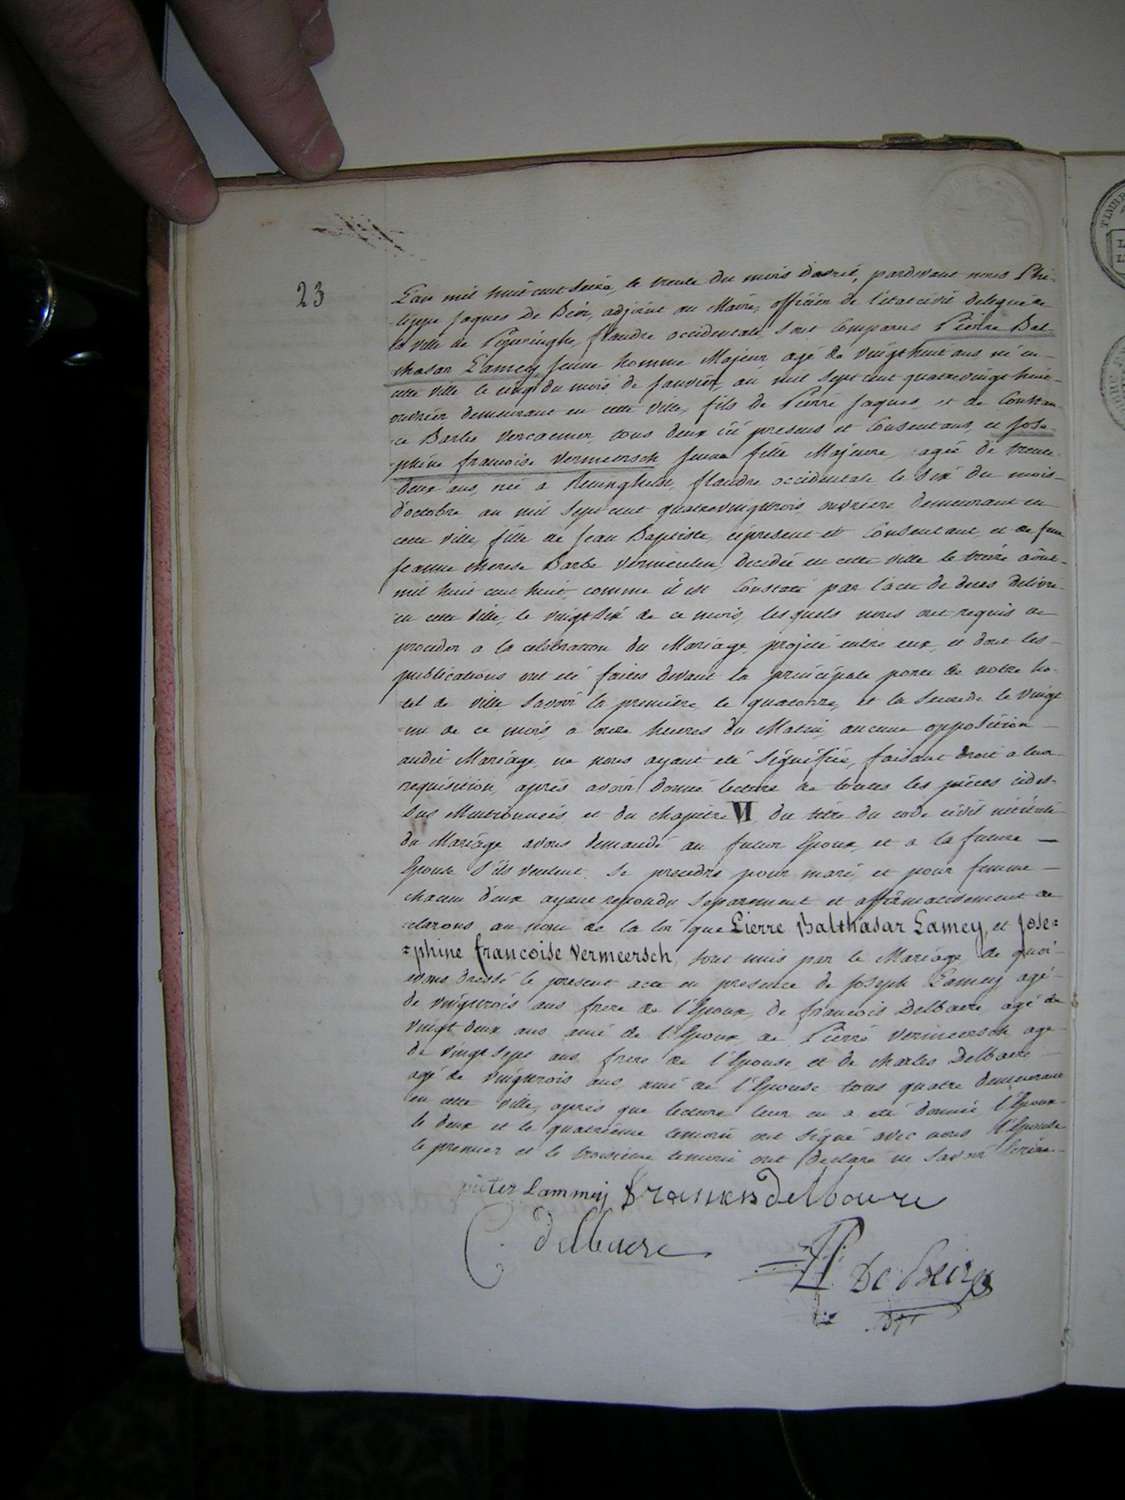 23
L'an mil huit cent seize, le trente du mois d'avril, pardevant nous Phi-
-lippe Jaques De Beir, adjoint au Maire, officier de l'état civil delegué de
la ville de Poperinghe, flandre occidentale, sont Comparus Pierre Bal-
thasar Lamey jeune homme Majeur, agé de vingt huit ans né en
cette ville le cinq du mois de janvier, an mil sept cent quatrevingt huit
ouvrier demeurant en cette ville, fils de Pierre Jaques, et de Constan-
ce Barbe Vercaemer, tous deux ici presens et Consentans, et Jose-
-phine francoise Vermeersch jeune fille Majeure, agée de trente
deux ans, née a Reninghelst, flandre occidentale le six du mois
d'octobre an mil sept cent quatrevingttrois ouvriere demeurant en
cette ville, fille de Jean Baptiste, cipresent et Consentant et de feue
Jeanne therese Barbe Vermeulen, decedée en cette ville le treize août
mil huit cent huit, comme il est Constaté par l'acte de deces delivré
en cette ville, le vingt six de ce mois, lesquels nous ont requis de
proceder a la celebration du Mariage projeté entre eux, et dont les
publications ont été faites devant la principale porte de notre ho-
tel de ville savoir la première le quatorze, et la seconde le vingt
un de ce mois, a onze heures du Matin, aucune opposition
audit Mariage, ne nous ayant été signifiée, faisant droit a leur
requisition, après avoir donné lecture de toutes les pièces cides-
sus Mentionnées et du chapitre VI du titre du code civil intitulé
du Mariage avons demandé au futur Epoux, et a la future
Epouse s'ils veulent se prendre pour mari, et pour femme
chacun d'eux ayant repondu separement et affirmativement de
clarons au nom de la loi que Pierre Balthasar Lamey, et Jose=
=phine francoise Vermeersch, sont unis par le Mariage de quoi
avons dressé le present acte en presence de Joseph Lamey agé
de vingttrois ans frere de l'Epoux, de francois Delbaere agé de
vingt deux ans ami de l'Epoux, de Pierre Vermeersch agé
de vingt sept ans, frere de l'Epouse, et de charles Delbaere
agé de vingttrois ans, ami de l'Epouse tous quatre demeurant
en cette ville, après que lecture leur en a été donnée l'Epoux
le deux et le quatrième temoin ont signé avec nous l'Epouse
le premier et le troisieme temoin ont declaré ne savoir écrire
pieter Lammeij Fransies Delbaere
C. Delbaere
De Beir